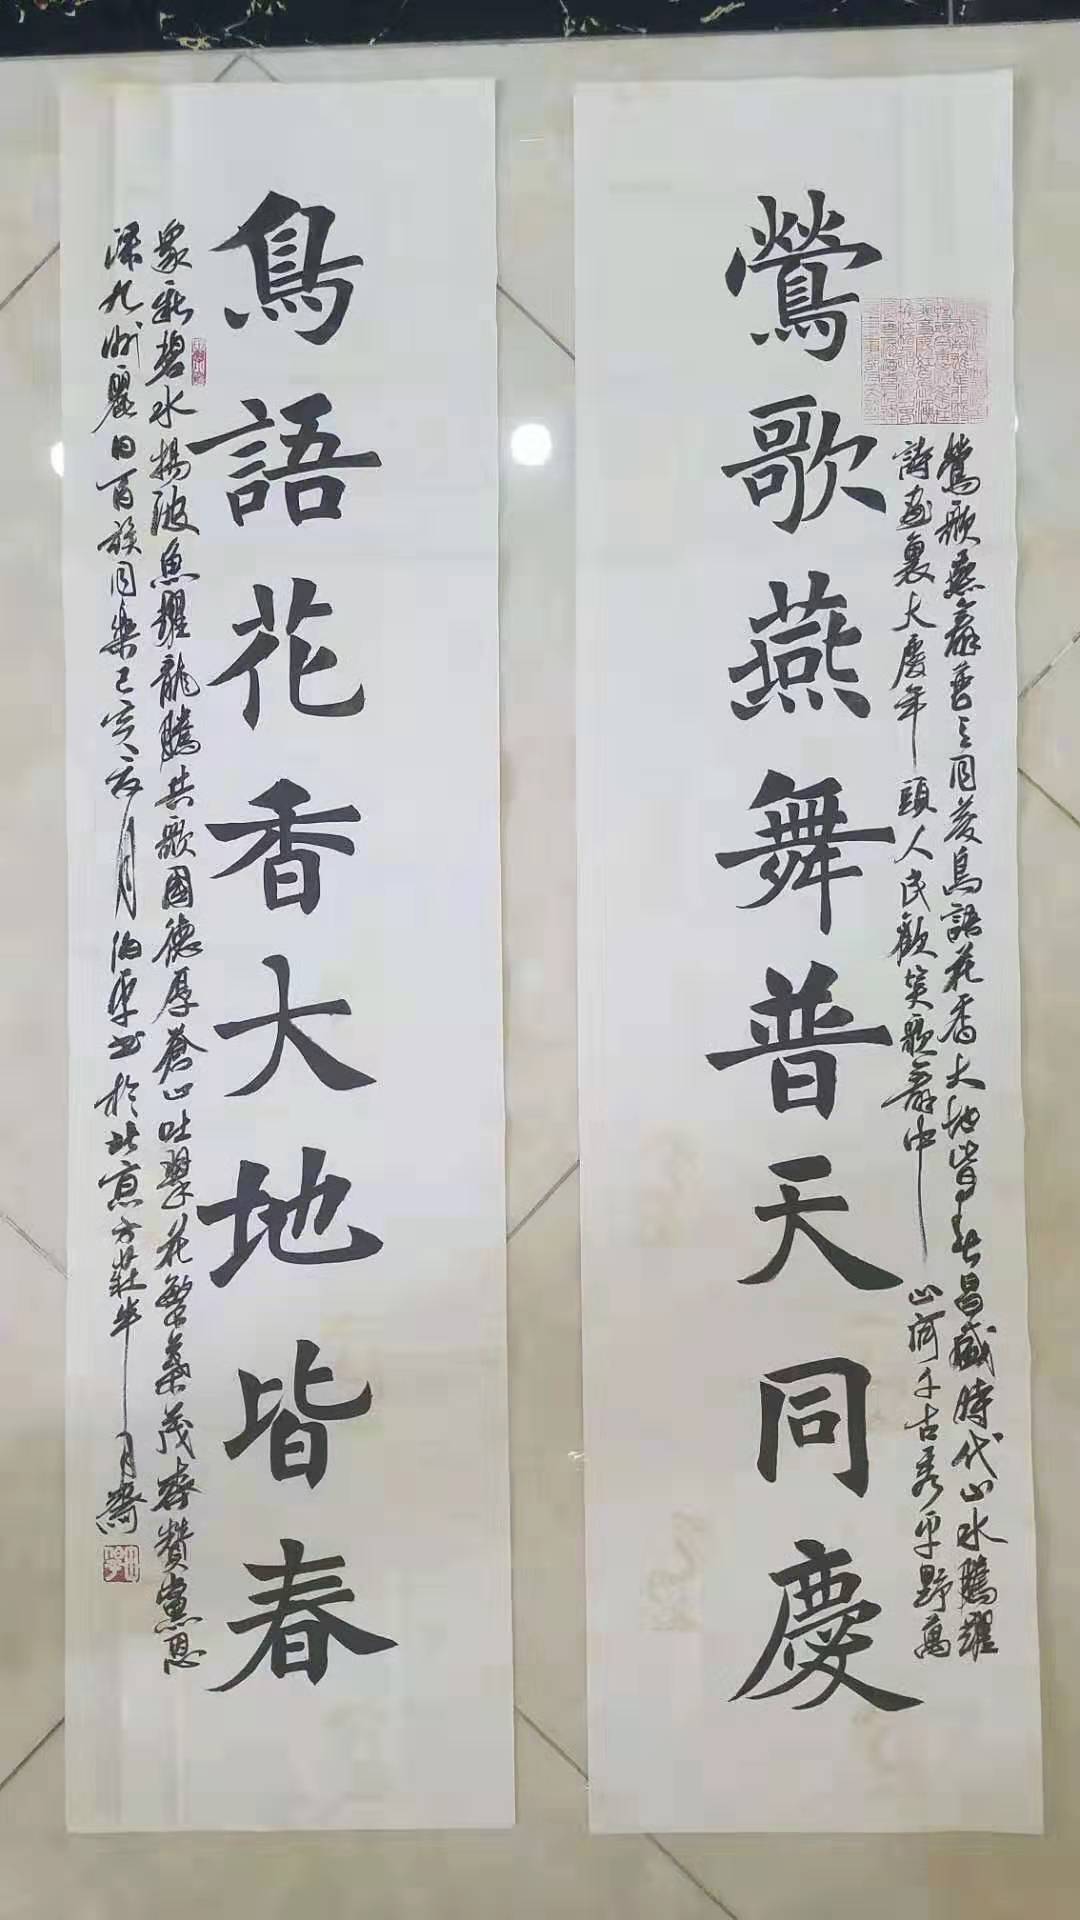 鶯歌燕舞普天同慶
鶯歌燕舞普天同慶鳥語花香大地皆春昌盛時代山水騰耀
詩畫裏大慶年頭人民歡笑歌舞中山河千古秀平野萬
鳥語花香大地皆春
象新碧水揚波魚躍龍騰共歌國德厚蒼山吐翠花繁葉茂齊贊黨恩
深九州麗日百族同樂己亥年月伯平書於北京方莊半月齋